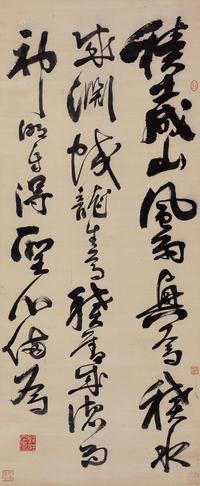 積土成山風雨興焉積水
成淵蛟龍生焉積善成德而
神明自得聖心備焉